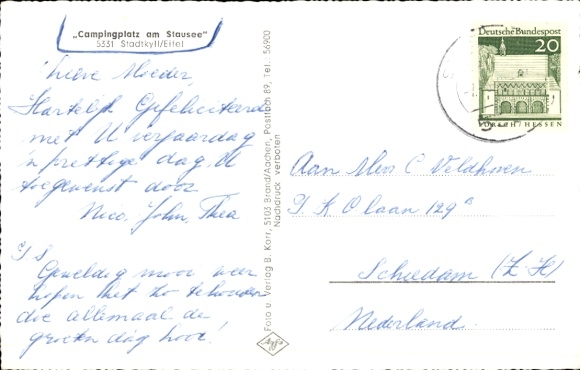 „Campingplatz am Stausee"
5531 Stadtkyll/Eifel
Lieve Moeder,
Hartelijk Gefeliciteerd
met U verjaardag
'n prettige dag U
toegewenst door
Nico, John, Thea
P S
Geweldig mooi weer
hopen het zo te houden
die allemaal de
groeten dag hoor!
Foto u. Verlag B. Korr, 5103 Brand/Aachen, Postfach 89, Tel.: 56900
Nachdruck verboten
Agfa
Deutsche Bundespost
20
LORSCH/HESSEN
Aan Mevr C Veldhoven
P. K. O laan 129 B
Schiedam (Z. H)
Nederland.